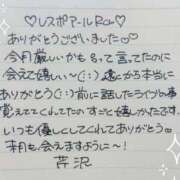 ♡レスポアールRさん♡
ありがとうございました♡
今月厳しいかもって言ってたのに
会えて嬉しい~(;;) 遠から本当に
ありがとう(;;)前に話したライブの事
覚えててくれてたのすごく嬉しかったです。
いつも優しくしてくれてありがとう
来月も会えますように~!
芹沢